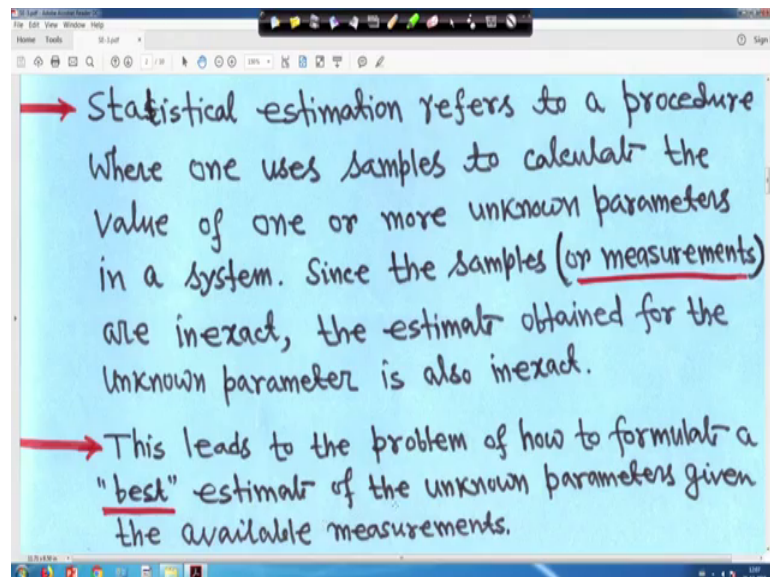 SE-3.pdf - Adobe Acrobat Reader DC
File Edit View Window Help
Home Tools SE-3.pdf × Sign
Statistical estimation refers to a procedure
where one uses samples to calculate the
value of one or more unknown parameters
in a system. Since the samples (or measurements)
are inexact, the estimate obtained for the
unknown parameter is also inexact.
This leads to the problem of how to formulate a
"best" estimate of the unknown parameters given
the available measurements.